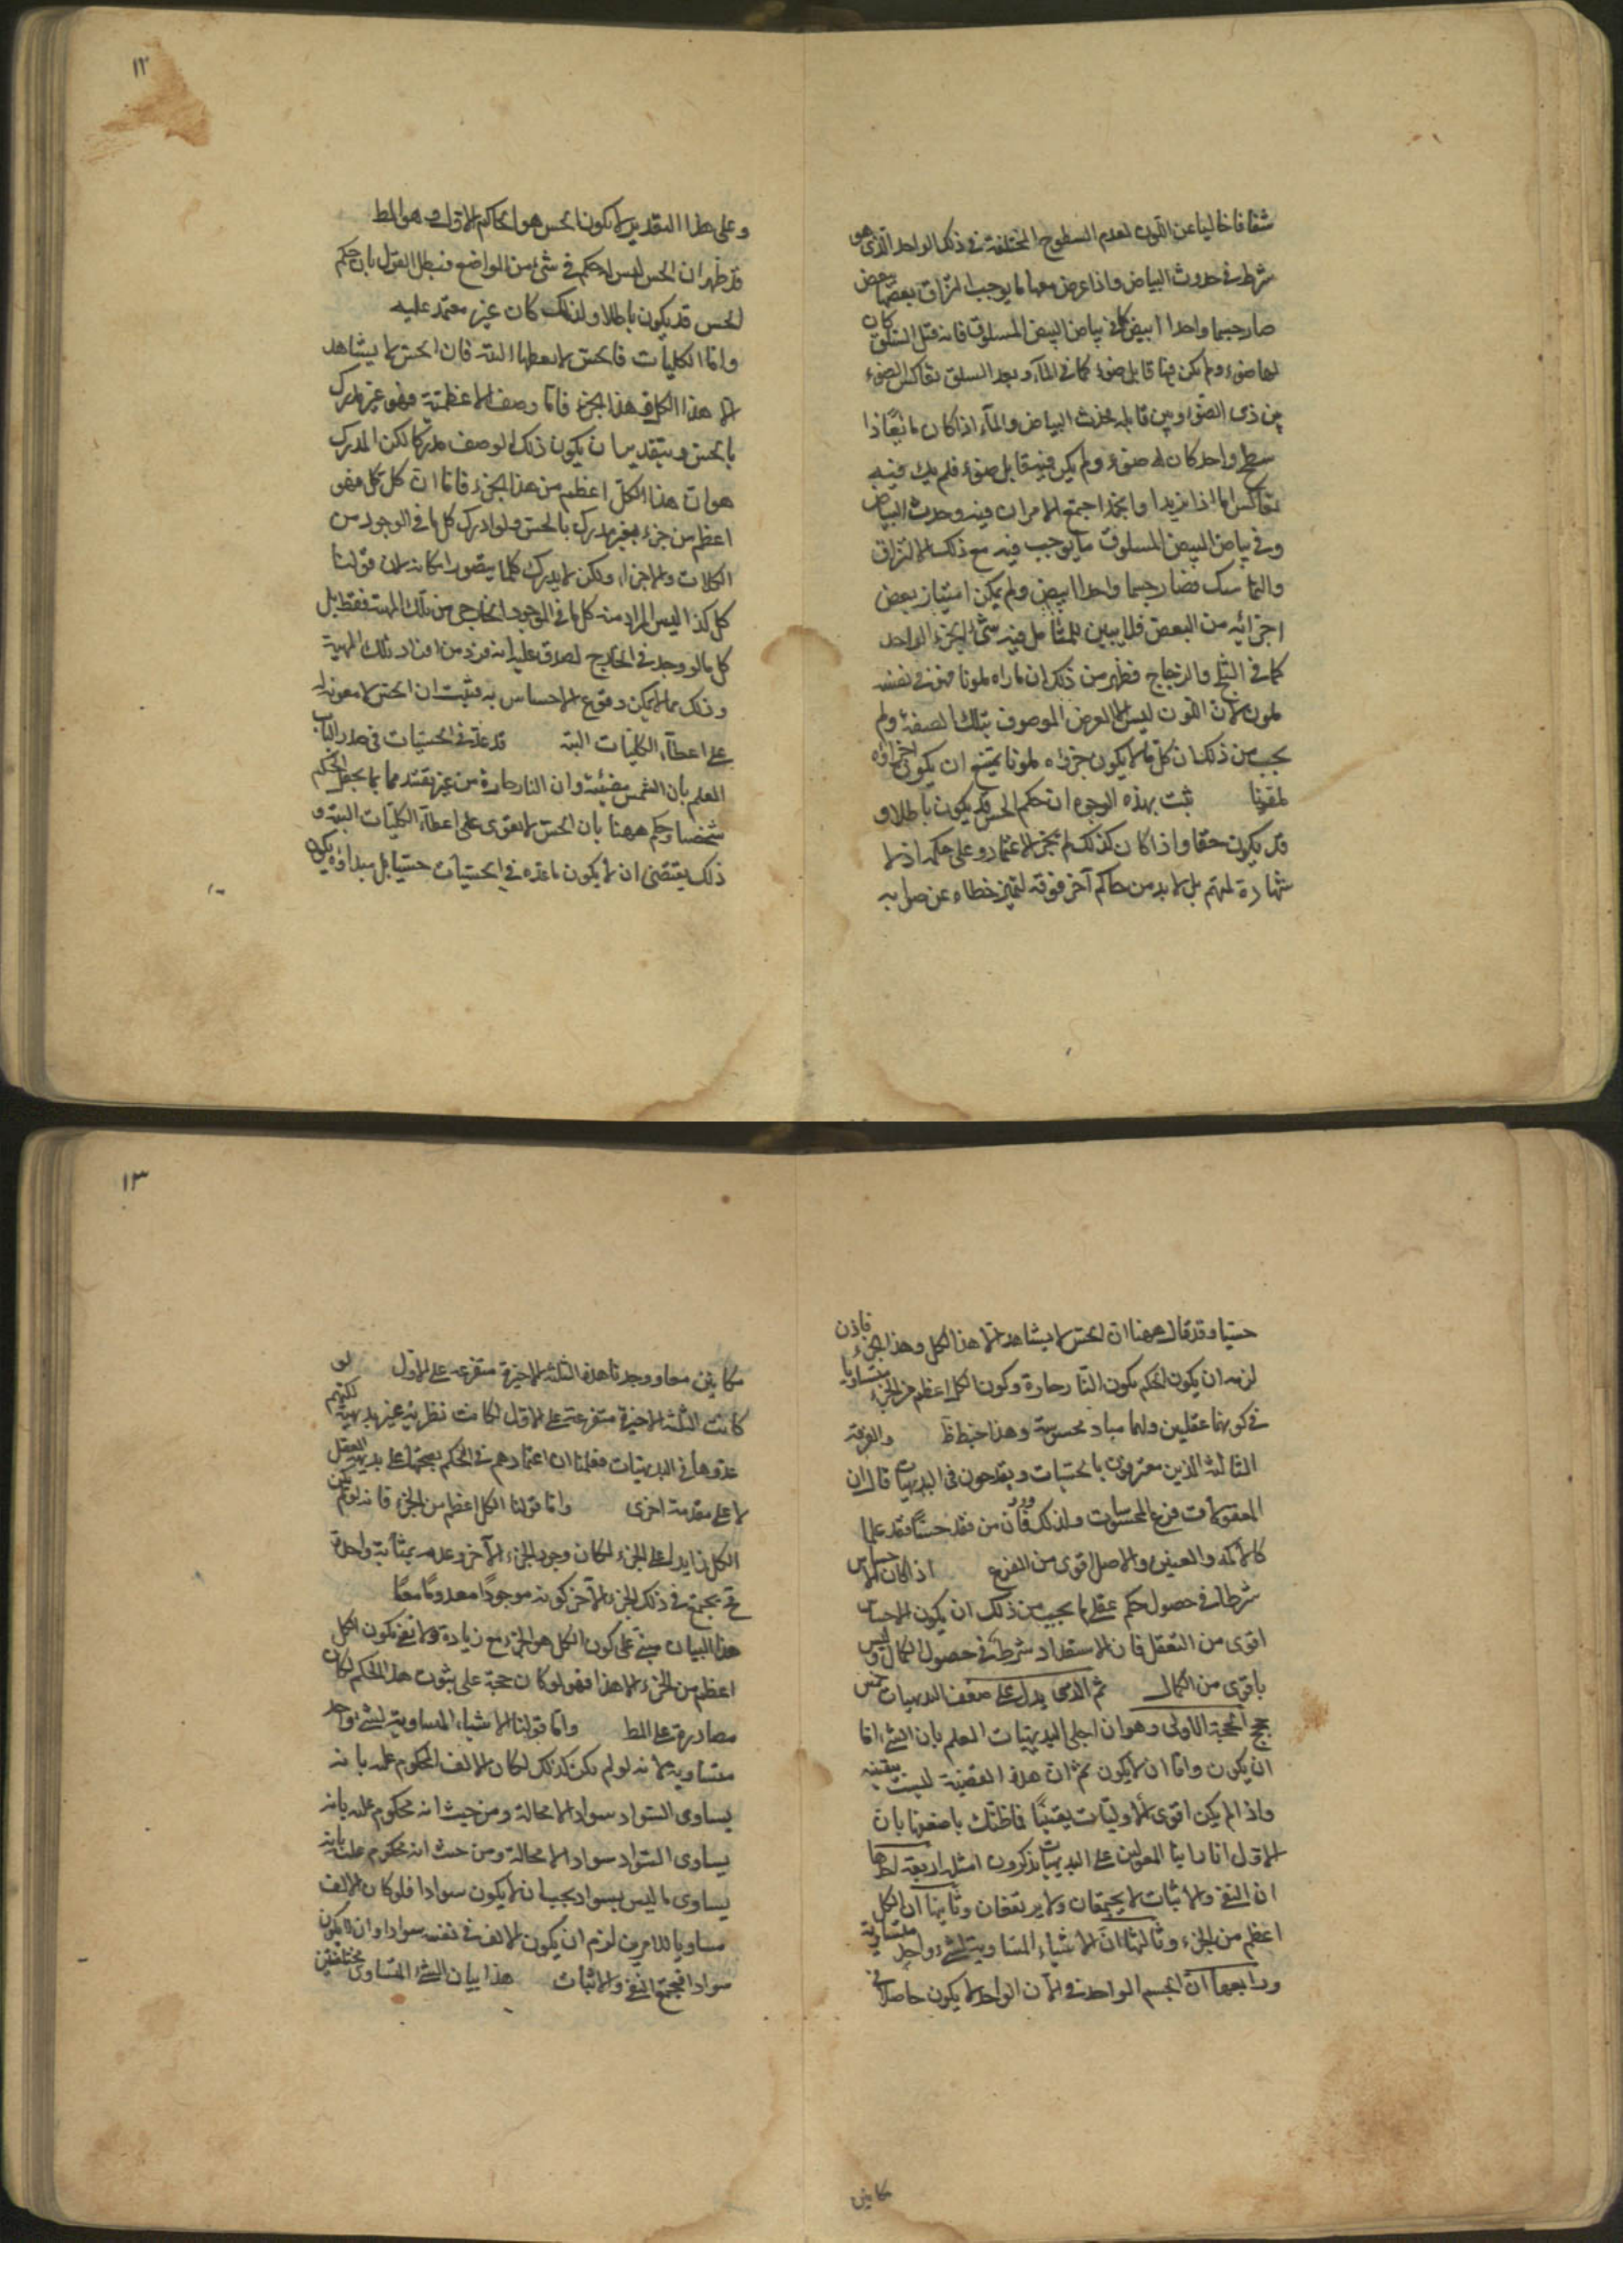 شفافا خاليا عن اللون لعدم السطوح المختلفة في ذلك الواحد الذي هو
شرط في حدوث البياض واذا عرض معها ما يوجب التزاق بعضها ببعض
صار جسما واحدا ابيض كما في بياض البيض المسلوق فانه قبل السلق كان
لها ضوء ولم يكن فيها قابل ضوء كما في الماء وبعد السلق تعاكس الضوء
بين ذي الضوء وبين قابله فحدث البياض والماء اذا كان مايعا ذا
سطح واحد كان له ضوء ولم يكن فيه قابل ضوء فلم يك فيه
تعاكس اما اذا ازبد او انجمد اجتمع الامران فيه وحدث البياض
وفي بياض البيض المسلوق ما يوجب فيه مع ذلك الالتزاق
والتماسك فصار جسما واحدا ابيض ولم يمكن امتياز بعض
اجزائه من البعض فلا يبين للمتأمل فيه شيء الجزء الواحد
كما في الثلج والزجاج فظهر من ذلك ان ما راه ملونا فهو في نفسه
ملون لان اللون ليس الا العرض الموصوف بتلك الصفة ولم
يجب من ذلك ان كل ما لا يكون جزءه ملونا يمتنع ان يكون اجزاؤه
ملونا ثبت بهذه الوجوه ان حكم الحس قد يكون باطلا و
قد يكون حقا واذا كان كذلك لم يجز الاعتماد على حكمه اذ لا
شهادة لمتهم بل لا بد من حاكم آخر فوقه لتميز خطاءه عن صوابه
١٢
وعلى هذا التقدير لا يكون الحس هو الحاكم الاول وهو المط
قد ظهر ان الحس ليس له حكم في شيء من المواضع فبطل القول بان حكم
الحس قد يكون باطلا ولذلك كان غير معتمد عليه
واما الكليات فالحس لا يعطها البتة فان الحس لا يشاهد
الا هذا الكل وهذا الجزء فاما وصف الاعظمية فهو غير مدرك
بالحس وبتقدير ان يكون ذلك الوصف مدركا لكن المدرك
هو ان هذا الكل اعظم من هذا الجزء فاما ان كل كل فهو
اعظم من جزءه فغير مدرك بالحس ولو ادرك كل ما في الوجود من
الكلات والاجزاء ولكن لا يدرك كلما يتصور امكانه لان قولنا
كل كذا ليس المراد منه كل ما في الموجود الخارجي من تلك المهية فقط بل
كل ما لو وجد في الخارج لصدق عليه انه فرد من افراد تلك المهية
وذلك مما لا يمكن وقوع الاحساس به فثبت ان الحس لا معونة له
على اعطاء الكليات البته قد عد في الحسيات في صدر الكتاب
العلم بان الشمس مضيئة وان النار حارة من غير تقييدهما بما يجعل الحكم
شخصيا وحكم ههنا بان الحس لا يقوى على اعطاء الكليات البتة و
ذلك يقتضي ان لا يكون ما عده في الحسيات حسيا بل مبداؤه يكون
حسيا وقد قال ههنا ان الحس لا يشاهد الا هذا الكل وهذا الجزء فاذن
لزمه ان يكون الحكم بكون النار حارة وكون الكل اعظم من الجزء متساويا
في كونهما عقليين ولهما مباد محسوسة وهذا خبط ظ والفرقة
الثالثة الذين معترفون بالحسيات ويقدحون في البديهيات قالوا ان
المعقولات فرع المحسوسات ولذلك ورد فان من فقد حسا فقد علما
كالاكمه والعنين والاصل اقوى من الفرع اذ كان الاحساس
شرطا في حصول حكم عقلي لا يجب من ذلك ان يكون الاحساس
اقوى من التعقل فان الاستعداد شرط في حصول الكمال وليس
باقوى من الكمال ثم الذي يدل على ضعف البديهيات خمس
حجج الحجة الاولى وهو ان اجلى البديهيات العلم بان الشيء اما
ان يكون واما ان لا يكون ثم ان هذه القضية ليست يقينية
واذا لم يكن اقوى الاوليات يقينيا فما ظنك باضعفها بان
الاول انا راينا المعولين على البديهيات يذكرون امثلة اربعة لها
ان النفي والاثبات لا يجتمعان ولا يرتفعان وثانيها ان الكل
اعظم من الجزء وثالثها ان الاشياء المساوية لشيء واحد متساوية
ورابعها ان الجسم الواحد في الان الواحد لا يكون حاصلا في
مكانين
١٣
مكانين معا ووجدنا هذه الثلثة الاخيرة متفرعة على الاول لو
كانت الثلثة الاخيرة متفرعة على الاول لكانت نظرية غير بديهية لكنهم
عدوها في البديهيات فعلمنا ان اعتمادهم في الحكم بصحتها على بديهة العقل
لا على مقدمة اخرى واما قولنا الكل اعظم من الجزء فانه لو لم يكن
الكل زايدا على الجزء لكان وجود الجزء الآخر وعدمه بمثابة واحدة
فح يجتمع في ذلك الجزء الآخر كونه موجودا معدوما معا
هذا البيان مبني على كون الكل هو الجزء مع زيادة ولا نعني بكون الكل
اعظم من الجزء الا هذا فهو لو كان حجة على ثبوت هذا الحكم لكان
مصادرة على المط واما قولنا الاشياء المساوية لشيء واحد
متساوية لانه لو لم يكن كذلك لكان الالف المحكوم عليه بانه
يساوي السواد سوادا لا محالة ومن حيث انه محكوم عليه بانه
يساوي السواد سوادا لا محالة ومن حيث انه محكوم عليه بانه
يساوي ما ليس بسواد يجب ان لا يكون سوادا فلو كان الالف
مساويا للامرين لزم ان يكون الالف في نفسه سوادا وان لا يكون
سوادا فيجتمع النفي والاثبات هذا بيان الشيء المتساوي مختلفين